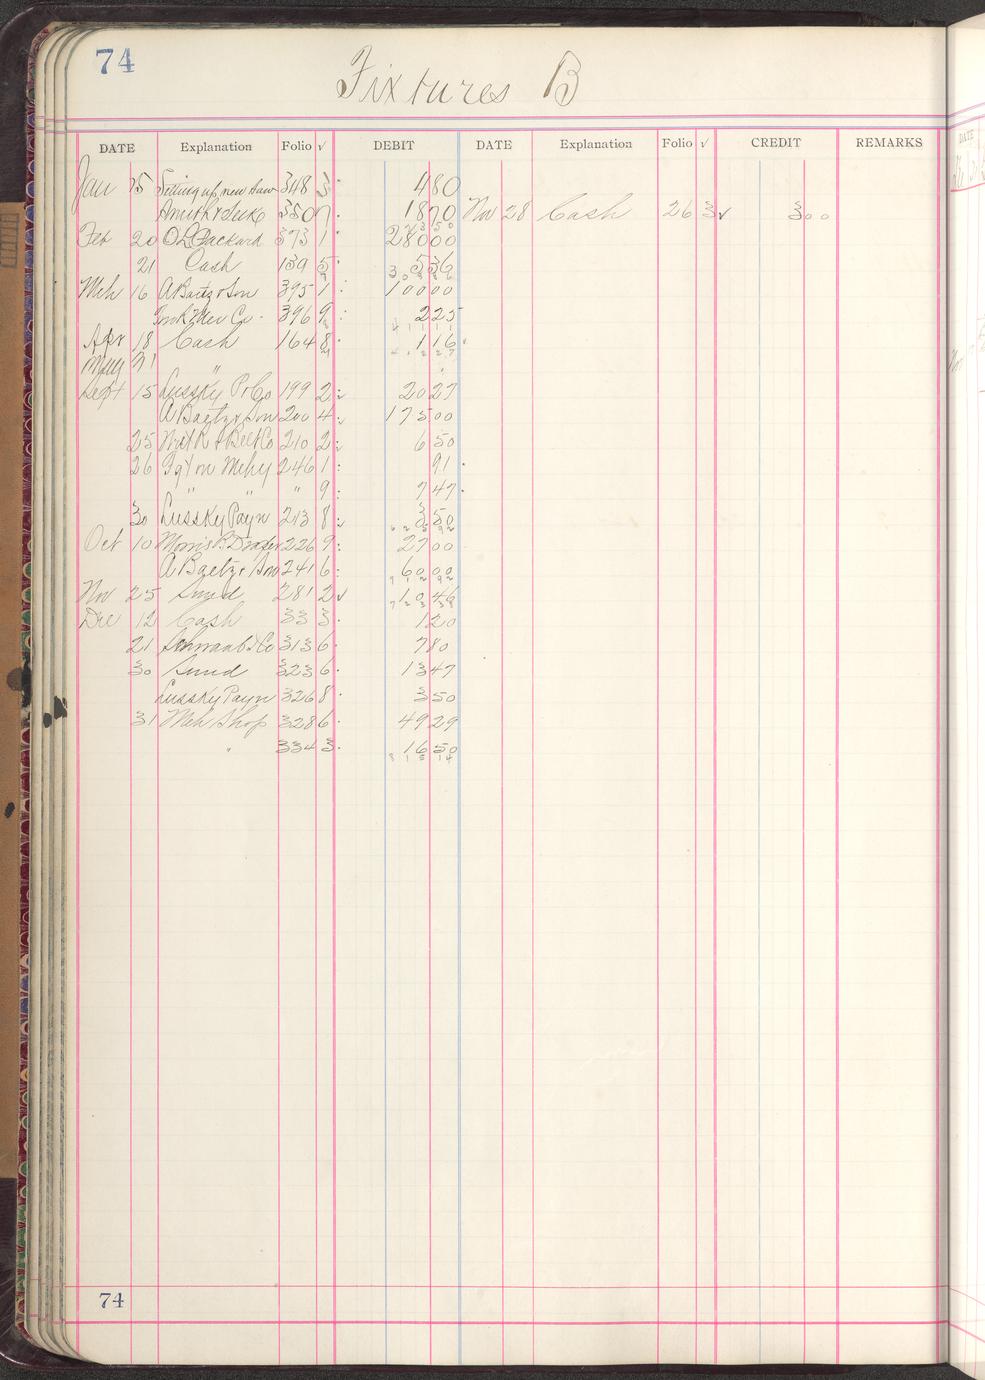 74
Fixtures B
DATE Explanation Folio √ DEBIT DATE Explanation Folio √ CREDIT REMARKS
Jan 5 Setting up new Saw 348 3 4 80
350 7 18 70 Nov 28 Cash 26 3 √ 3 00
23 50
Feb 20 O L Packard 373 1 280 00
21 Cash 139 5 5 36
Mch 16 A Baetz & Son 395 1 100 00
396 9 2 25
Apr 18 Cash 164 8 1 16
May 21 "
Sept 15 Lussky P Co 199 2 20 27
A Baetz & Son 200 4 175 00
25 & Belt Co 210 2 6 50
26 Mchy 246 1 91
" " " 9 7 47
30 Lussky Payn 213 8 3 50
Oct 10 Morris B 226 9 27 00
A Baetz & Son 241 6 60 00
Nov 25 Sund 281 2 √ 10 46
Dec 12 Cash 33 3 1 20
21 Schwaab & Co 313 6 7 80
30 Sund 323 6 13 47
Lussky Payn 326 8 3 50
31 Mch Shop 328 6 49 29
" 334 3 16 50
74
DATE